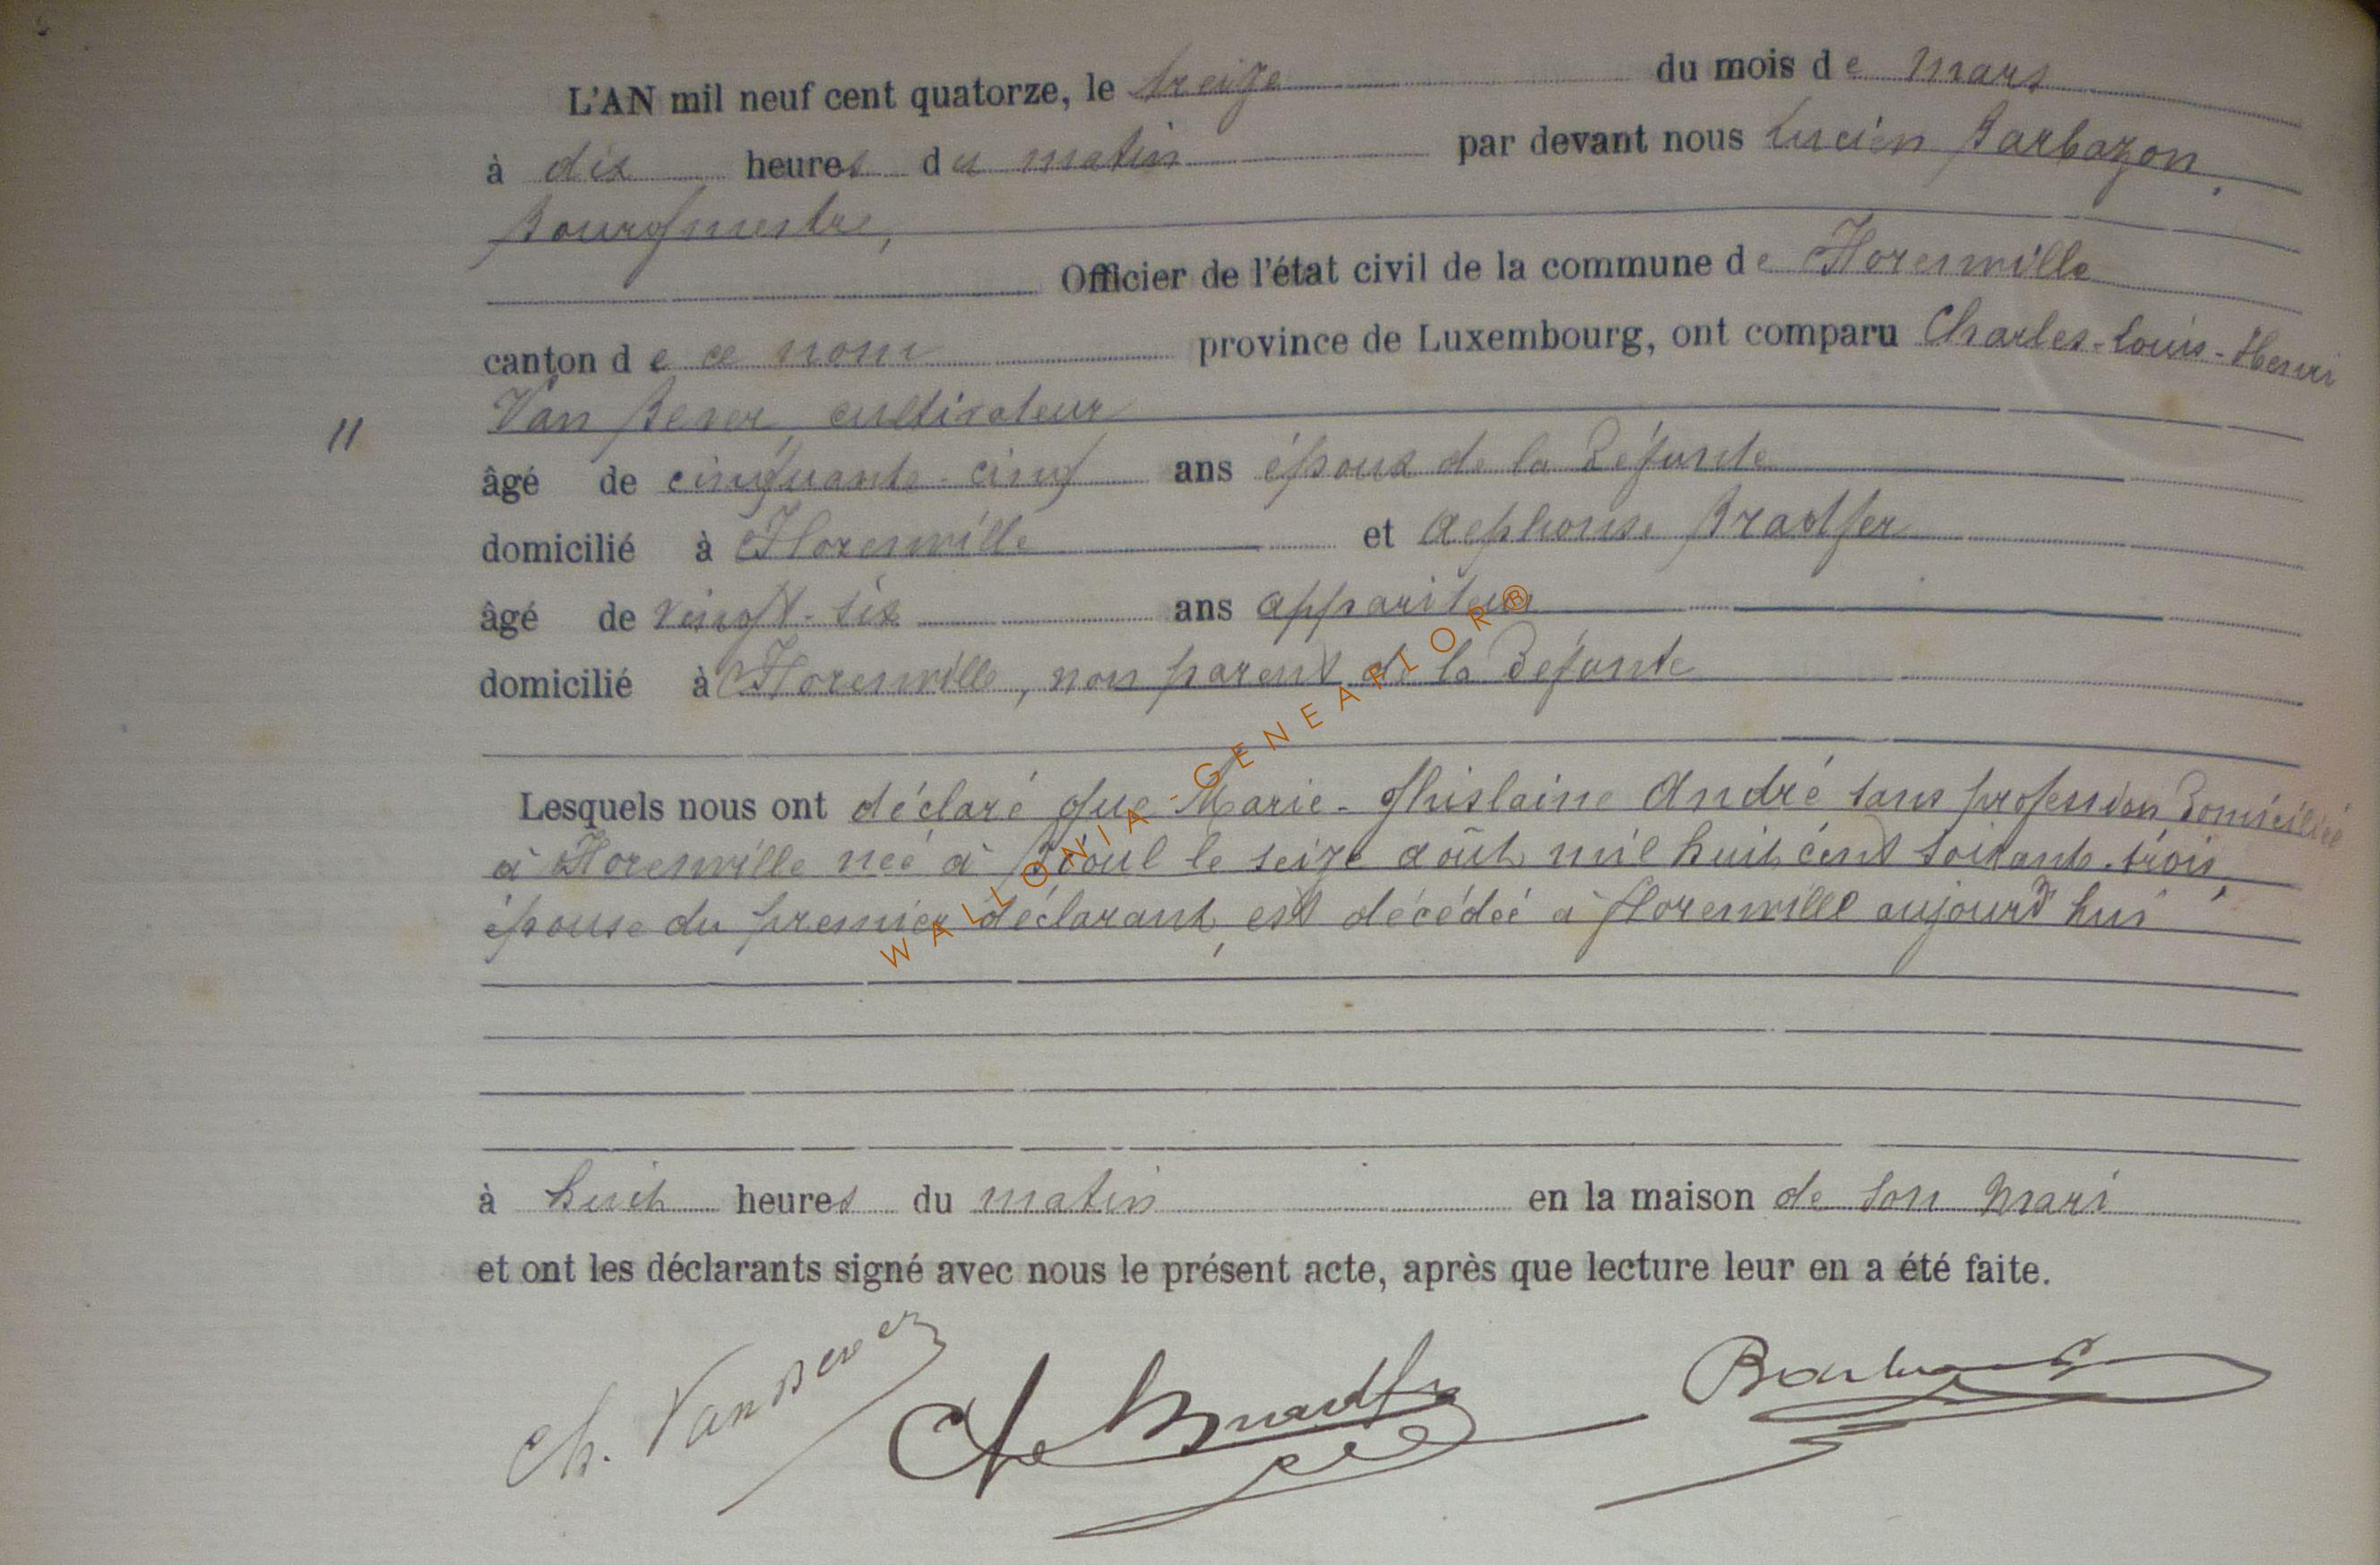 L'AN mil neuf cent quatorze, le treize du mois de mars
à dix heures du matin par devant nous Lucien Barbazon,
Bourgmestre,
Officier de l'état civil de la commune de Florenville
canton de ce nom province de Luxembourg, ont comparu Charles-Louis-Henri
11 Van Bever, cultivateur
âgé de cinquante-cinq ans époux de la Défunte
domicilié à Florenville et Alphonse Bradfer
âgé de vingt-six ans appariteur
domicilié à Florenville, non parent de la Défunte
Lesquels nous ont déclaré que Marie-Ghislaine André sans profession Domiciliée
à Florenville née à le seize août mil huit cent soixante-trois,
épouse du premier déclarant, est décédée à florenville aujourd'hui
à huit heures du matin en la maison de son mari
et ont les déclarants signé avec nous le présent acte, après que lecture leur en a été faite.
Ch. VanBever
WALLONIA-GENEAPIOR®